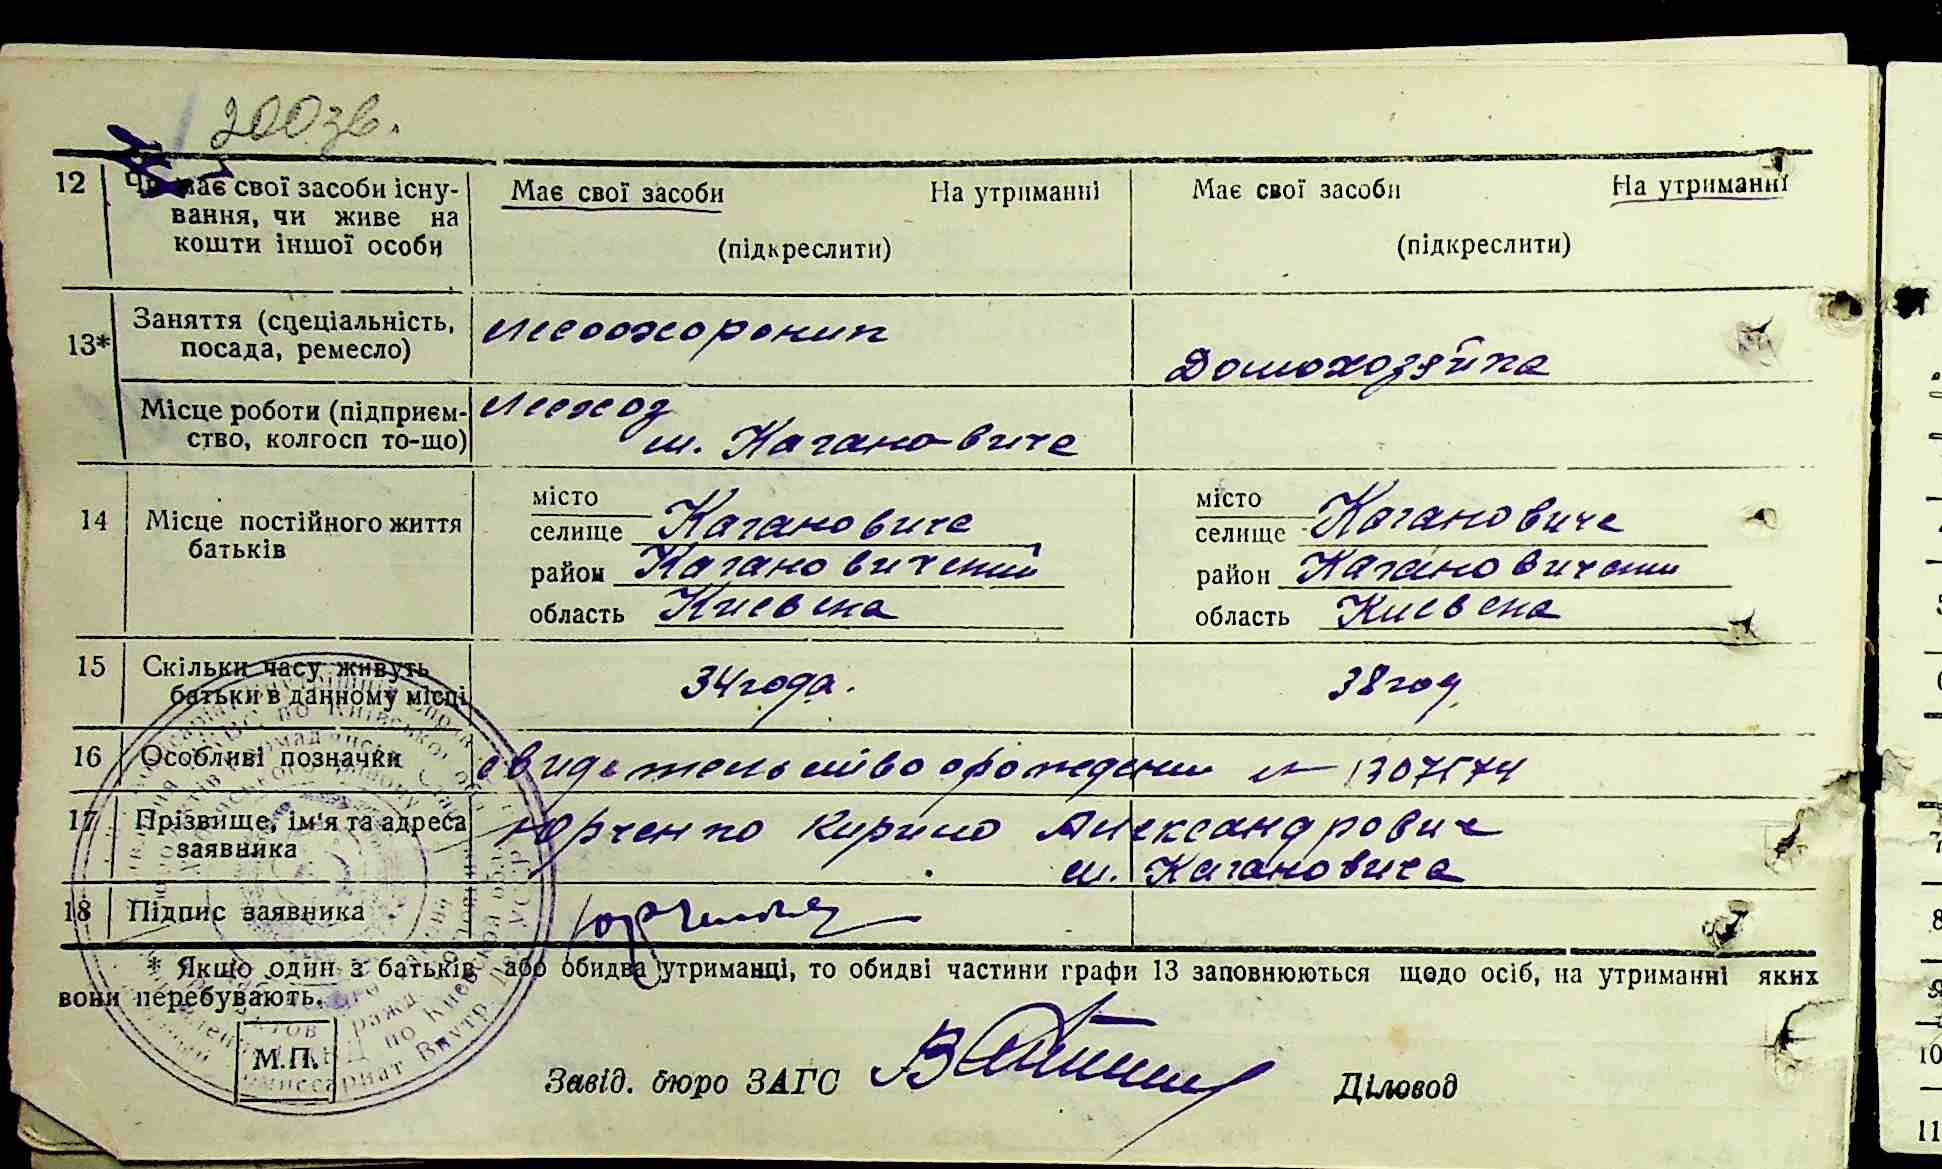 200 зв.
12 Чи має свої засоби існу-
вання, чи живе на
кошти іншої особи
Має свої засоби На утриманні
(підкреслити)
Має свої засоби На утриманні
(підкреслити)
13* Заняття (спеціальність,
посада, ремесло)
Домохозяйка
Місце роботи (підприєм-
ство, колгосп то-що)
м. Кагановиче
14 Місце постійного життя
батьків
місто
селище Кагановиче
район Кагановичский
область Киевска
місто
селище Кагановиче
район Кагановичский
область Киевска
15 Скільки часу живуть
батьки в данному місці
34 года.
38 год
16 Особливі позначки
свидетельство о рождении № 1307574
17 Прізвище, ім'я та адреса
заявника
Юрченко Кирило Александрович
м. Кагановича
18 Підпис заявника
Юрченко
* Якщо один з батьків або обидва утриманці, то обидві частини графи 13 заповнюються щодо осіб, на утриманні яких
вони перебувають.
М.П.
Завід. бюро ЗАГС
Діловод